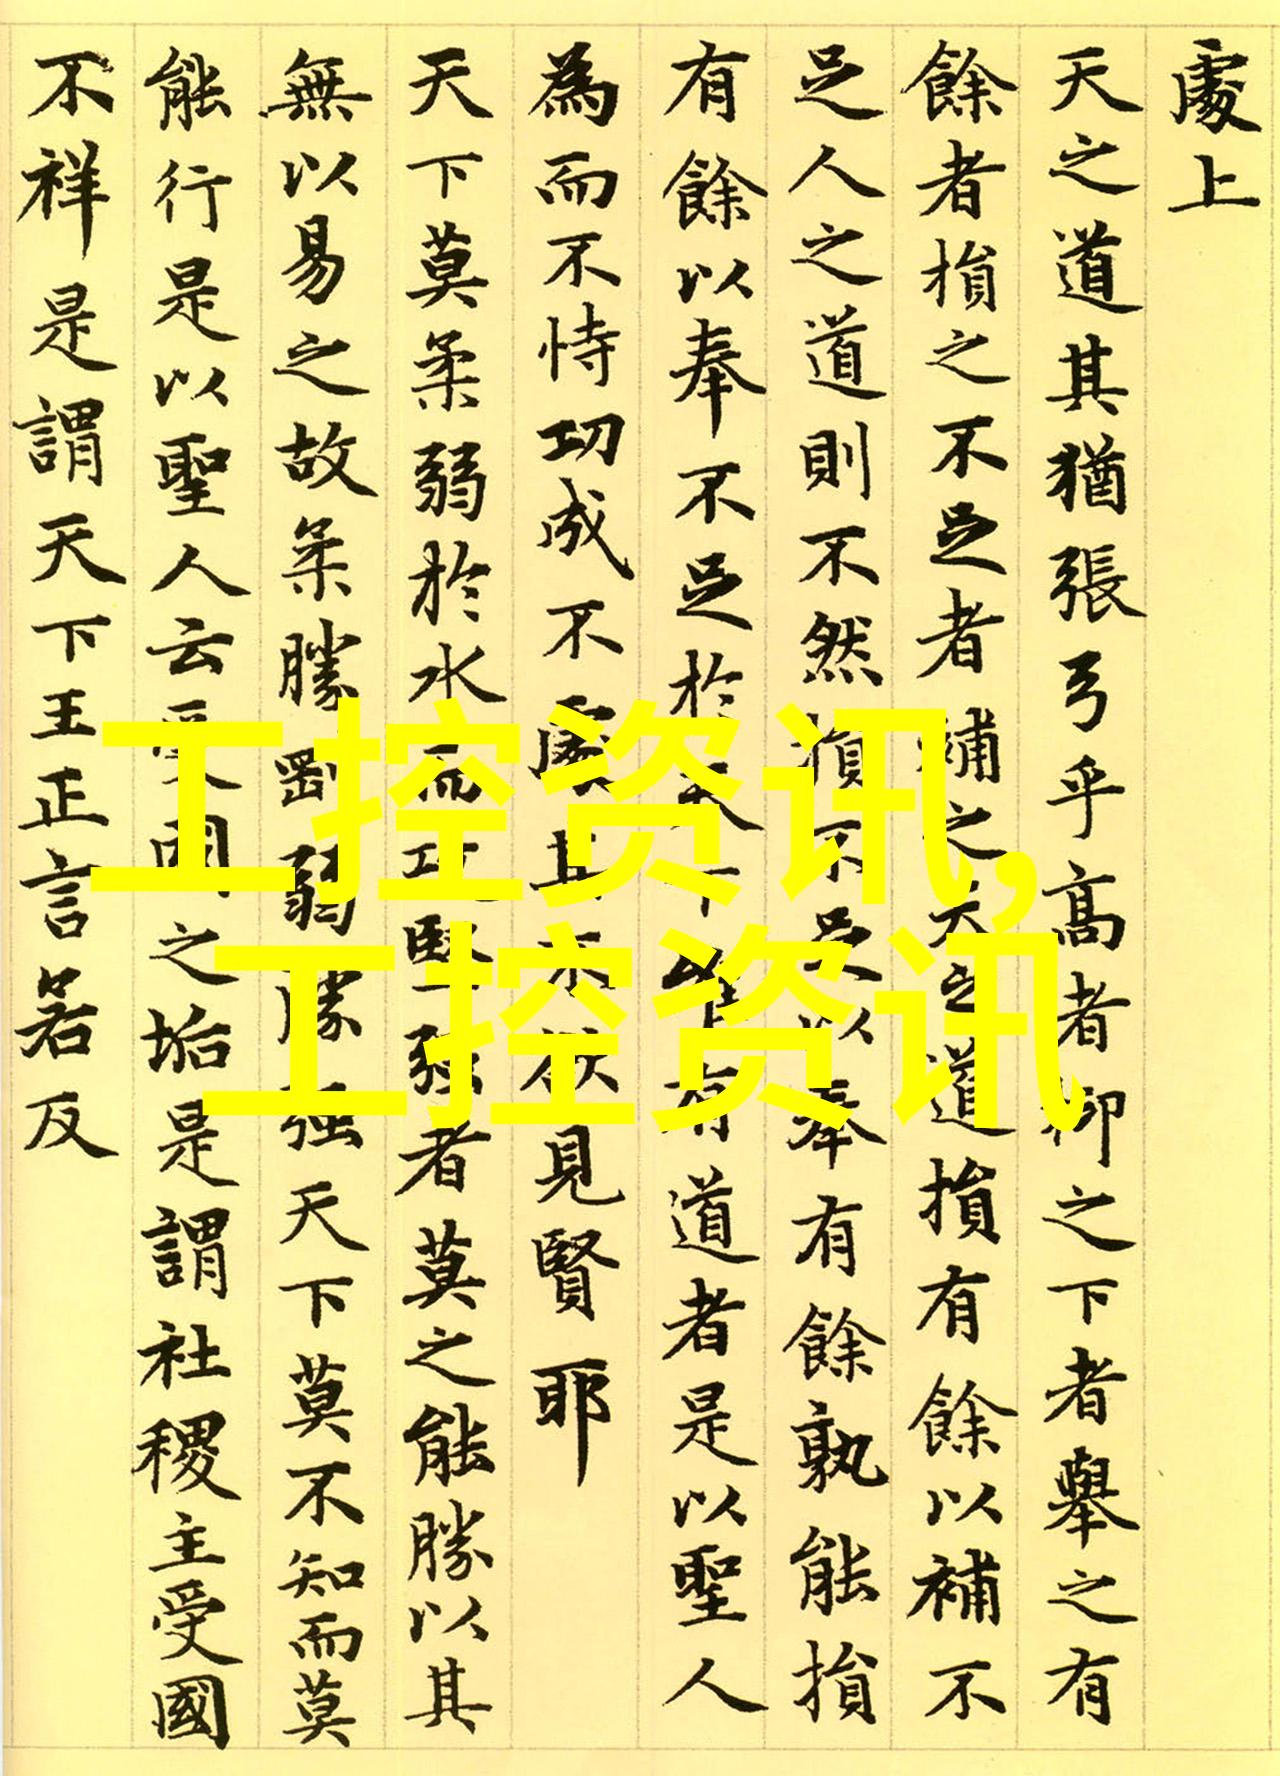 處上
天之道其猶張弓乎高者抑之下者舉之有
餘者損之不足者補之天之道損有餘以補不
足人之道則不然損不足以奉有餘孰能損
有餘以奉不足於天下唯有道者是以聖人
為而不恃功成不處其不欲見賢耶
天下莫柔弱於水而攻堅強者莫之能勝以其
無以易之故柔勝剛弱勝强天下莫不知而莫
能行是以聖人云受國之垢是謂社稷主受國
不祥是謂天下王正言若反
工控资讯,
工控资讯